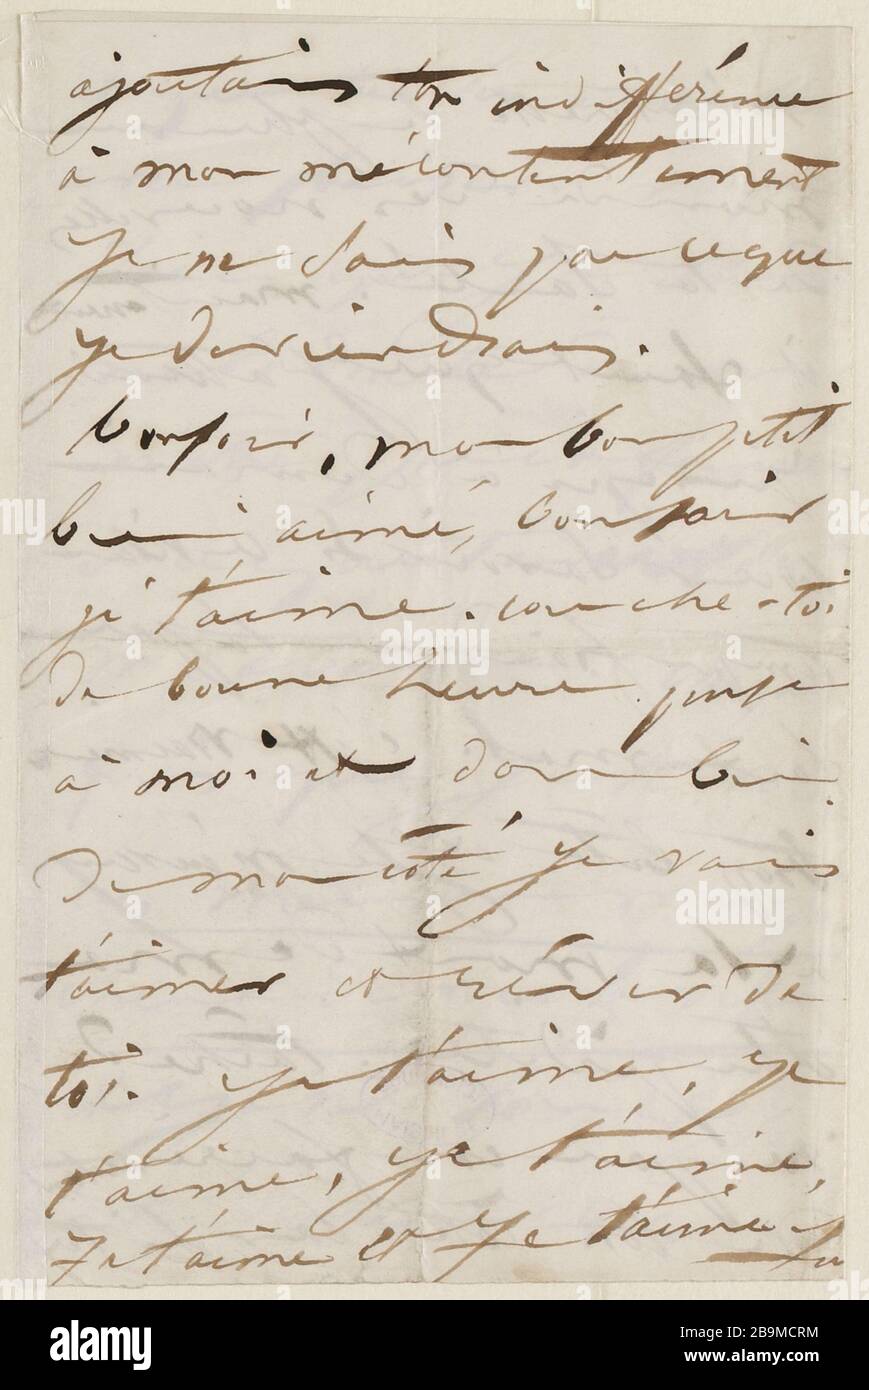 ajoutais ton indifférence
à mon mécontentement
Je ne sais pas ce que
je deviendrais.
bonsoir, mon bon petit
bien aimé, bonsoir
je t'aime. couche-toi
de bonne heure pense
à moi et dors bien
De mon côté Je vais
t'aimer et rêver de
toi. Je t'aime, je
t'aime, je t'aime,
Je t'aime et Je t'aime
alamy
Image ID: 2B9MCRM
www.alamy.com